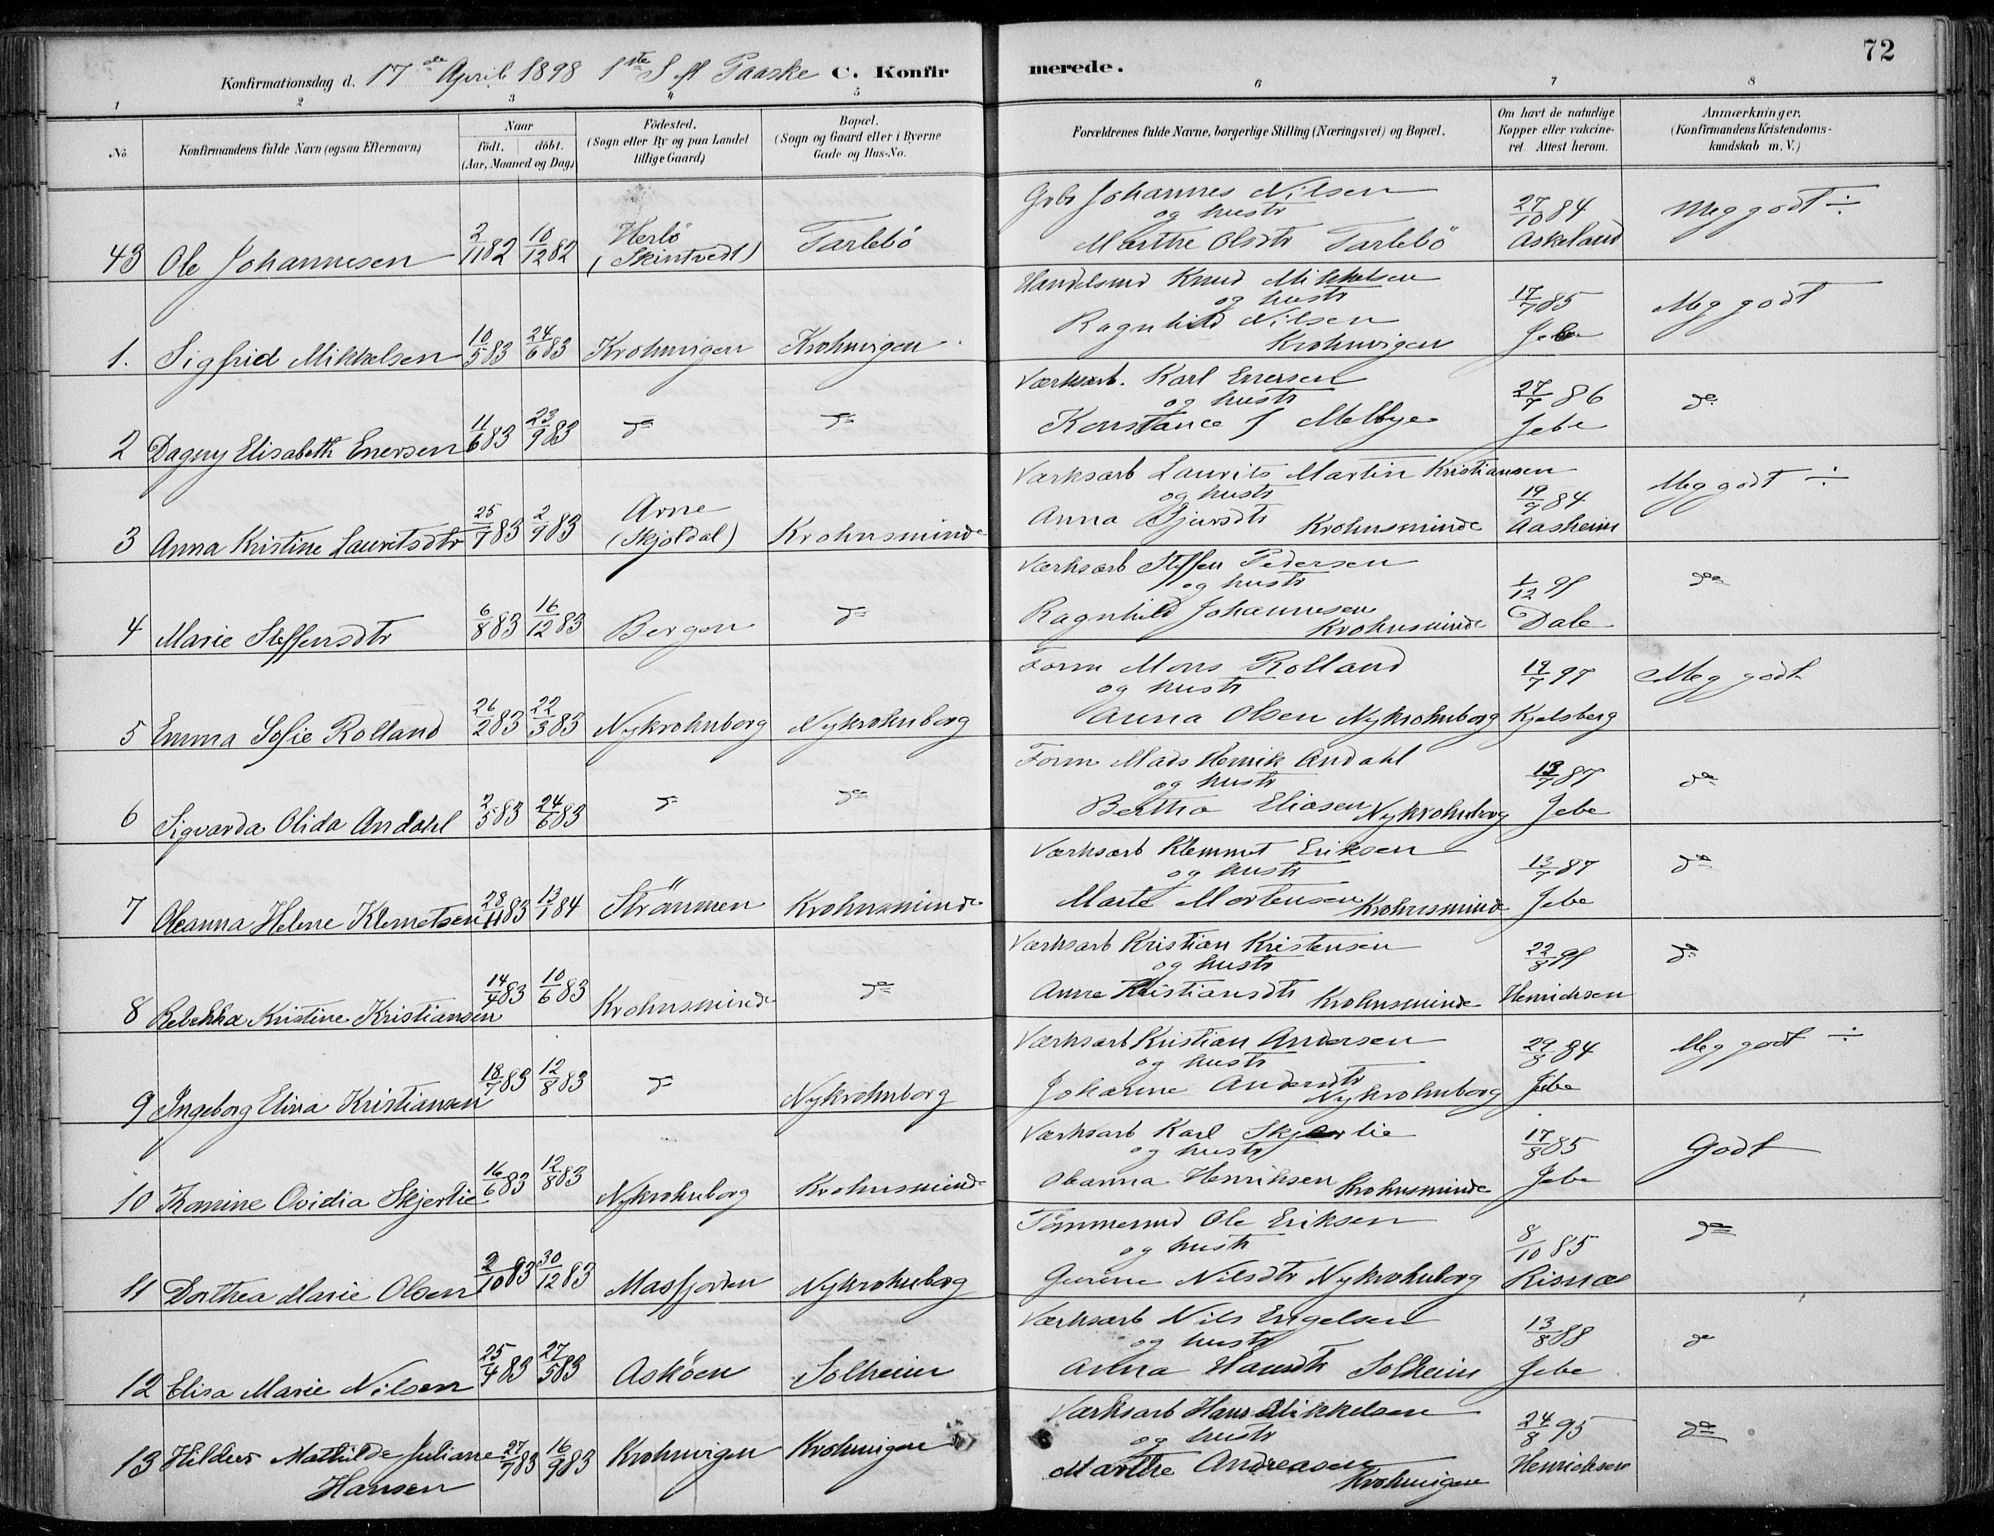 72
Konfirmationsdag d. 17de April 1898 1ste S. Paaske C. Konfirmerede.
1 2 3 4 5 6 7 8
No Konfirmandens fulde Navn (ogsaa Efternavn) Naar født. døbt. (Aar, Maaned og Dag) Fødested. (Sogn eller By og paa Landet tillige Gaard) Bopæl. (Sogn og Gaard eller i Byerne Gade og Hus-No. Forældrenes fulde Navne, borgerlige Stilling (Næringsvei) og Bopæl. Om havt de naturlige Kopper eller vaccineret. Attest herom. Anmærkninger. (Konfirmandens Kristendomskundskab m. V.)
43 Ole Johannesen 2/11 82 10/12 82 Herlö (Skintvedt) Tarlebö Johannes Nilsen og hustr Marthe Olsdtr Tarlebö 27/10 84 Askeland Meg godt ÷
1. Sigfrid Mikkelsen 10/5 83 24/6 83 Krohnvigen Krohnvigen Handelsmd Knud Mikkelsen og hustr Ragnhild Nilsen Krohnvigen 17/7 85 Jebe Meg godt
2 Dagny Elisabeth Enersen 11/6 83 23/9 83 do do Værksarb. Karl Enersen og hustr Konstance J Melbye 27/7 86 Jebe do
3 Anna Kristine Lauritsdtr 25/7 83 2/9 83 Arne (Skjoldal) Krohnsminde Værksarb Laurits Martin Kristiansen og hustr Anna Gjersdtr Krohnsminde 19/9 84 Aasheim Meg godt ÷
4 Marie Steffensdtr 6/8 83 16/12 83 Bergen do Værksarb Steffen Pedersen og hustr Ragnhild Johannesen Krohnsminde 1/12 Dale do
5 Emma Sofie Rolland 26/2 83 22/3 83 Nykrohnborg Nykrohnborg Form Mons Rolland og hustr Anna Olsen Nykrohnborg 19/7 97 Kjelsberg Meg godt
6 Sigvarda Olida Andahl 2/5 83 24/6 83 do do Form Mads Henrik Andahl og hustr Bertha Eliasen Nykrohnborg 13/7 87 Jebe do
7 Oleanna Helene Klemetsen 28/11 83 13/1 84 Strömmen Krohnsminde Værksarb Klemmet Eriksen og hustr Marte Mortensen Krohnsminde 13/7 87 Jebe do
8 Rebekka Kristine Kristiansen 14/4 83 10/6 83 Krohnsminde do Værksarb Kristian Kristensen og hustr Anne Kristiansdtr Krohnsminde 22/8 Henriksen do
9 Ingeborg Elina Kristiansen 18/7 83 12/8 83 do Nykrohnborg Værksarb Kristian Andersen og hustr Johanne Andersdtr Nykrohnborg 29/8 84 Jebe Meg godt ÷
10 Tomine Ovidia Skjerlie 16/6 83 12/8 83 Nykrohnborg Krohnsminde Værksarb Karl Skjerlie og hustr Oleanna Henriksen Krohnsminde 17/8 85 Jebe Godt
11 Dorthea Marie Olsen 2/10 83 30/12 83 Masfjorden Nykrohnborg Tömmermd Ole Eriksen og hustr Gurine Nilsdtr Nykrohnborg 8/10 85 Risnæs do
12 Elisa Marie Nilsen 25/4 83 27/5 83 Asköen Solheim Værksarb Nils Engelsen og hustr Anna Hansdtr Solheim 13/8 88 Jebe do
13 Hildur Mathilde Juliane Hansen 27/7 83 16/9 83 Krohnvigen Krohnvigen Værksarb Hans Mikkelsen og hustr Marthe Andreasen Krohnvigen 24/8 95 Henriksen do